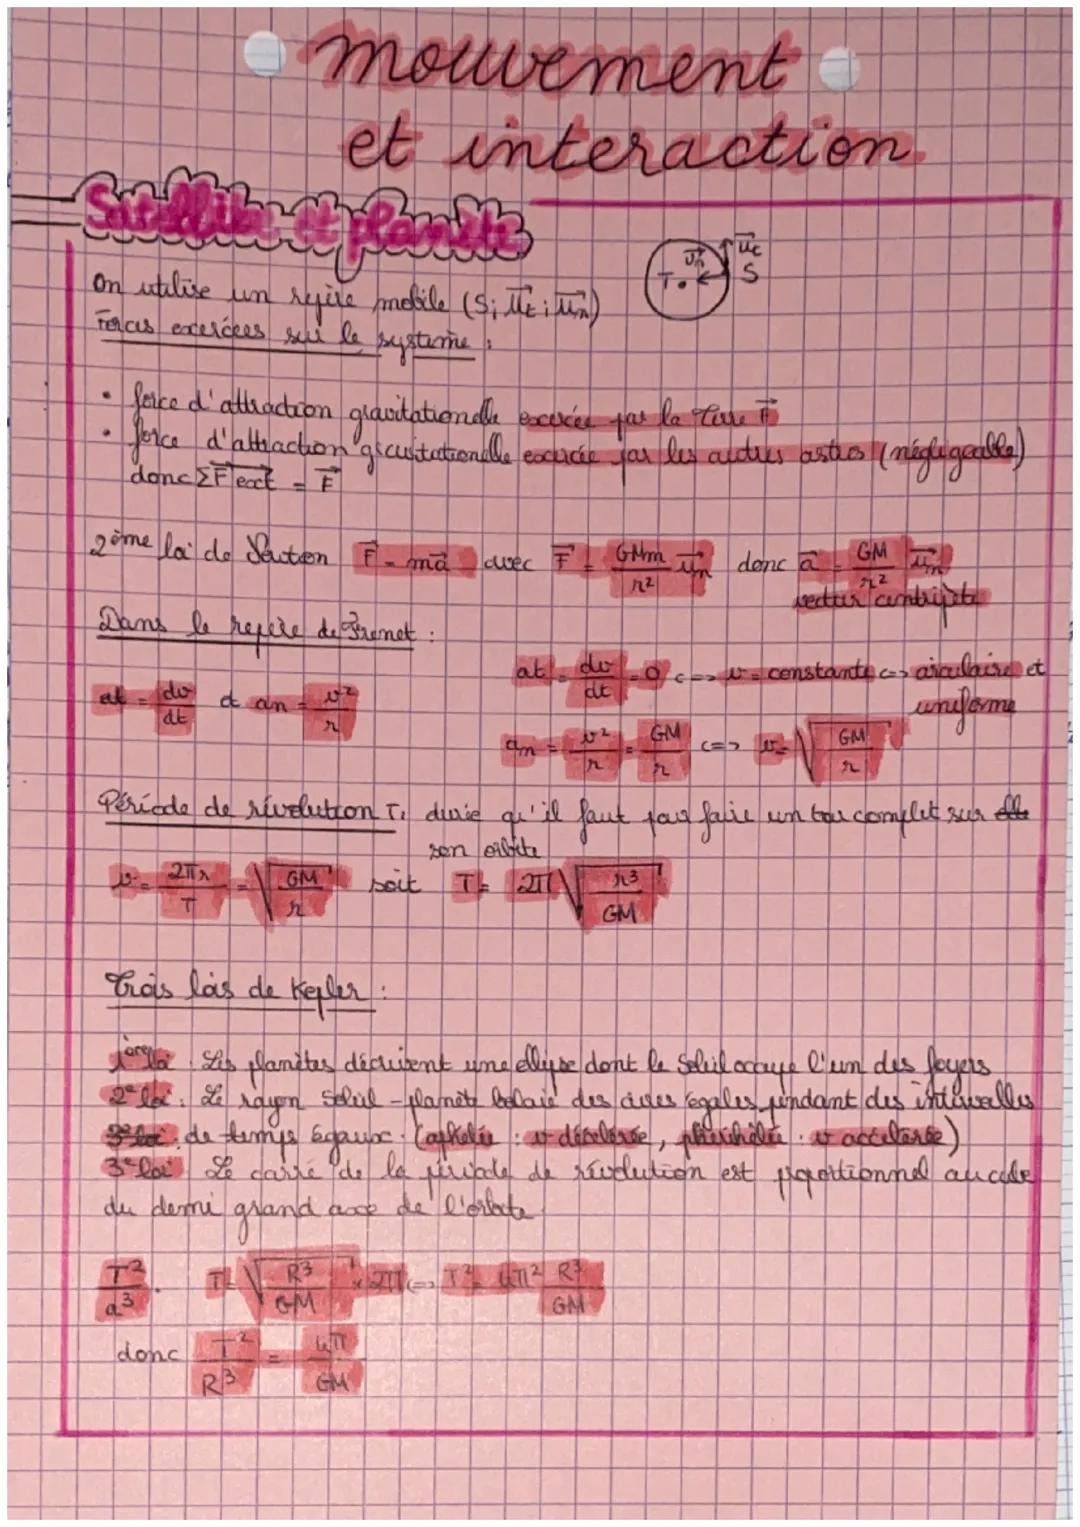 mouvement
et interaction.
Satellite et planète
On utilise un repère mobile (S; u⃗t ; u⃗n)
u⃗t
u⃗n
T. S
Forces exercées sur le système :
• force d'attraction gravitationelle exercée par la Terre F⃗
• force d'attraction gravitationelle exercée par les autres astres (négligeable)
donc ΣF⃗ext = F⃗
2ème loi de Newton F⃗ = ma⃗ avec F⃗ = GMm/r² u⃗n donc a⃗ = GM/r² u⃗n
vecteur centripète
Dans le repère de Frenet :
at = dv/dt et an = v²/r
at = dv/dt = 0 <=> v = constante <=> circulaire et
uniforme
an = v²/r = GM/r <=> v = √(GM/r)
Période de révolution T: durée qu'il faut pour faire un tour complet sur
son orbite
v = 2πr/T = √(GM/r) soit T = 2π√(r³/GM)
Trois lois de Kepler :
1ère loi : Les planètes décrivent une ellipse dont le Soleil occupe l'un des foyers
2e loi : Le rayon Soleil-planète balaie des aires égales pendant des intervalles
3e loi : de temps égaux. (aphélie : v décélérée, phérihélie : v accélérée)
3e loi Le carré de la période de révolution est proportionnel au cube
du demi grand axe de l'orbite
T²/a³. T = √(R³/GM) × 2π <=> T² = 4π² R³/GM
donc T²/R³ = 4π/GM